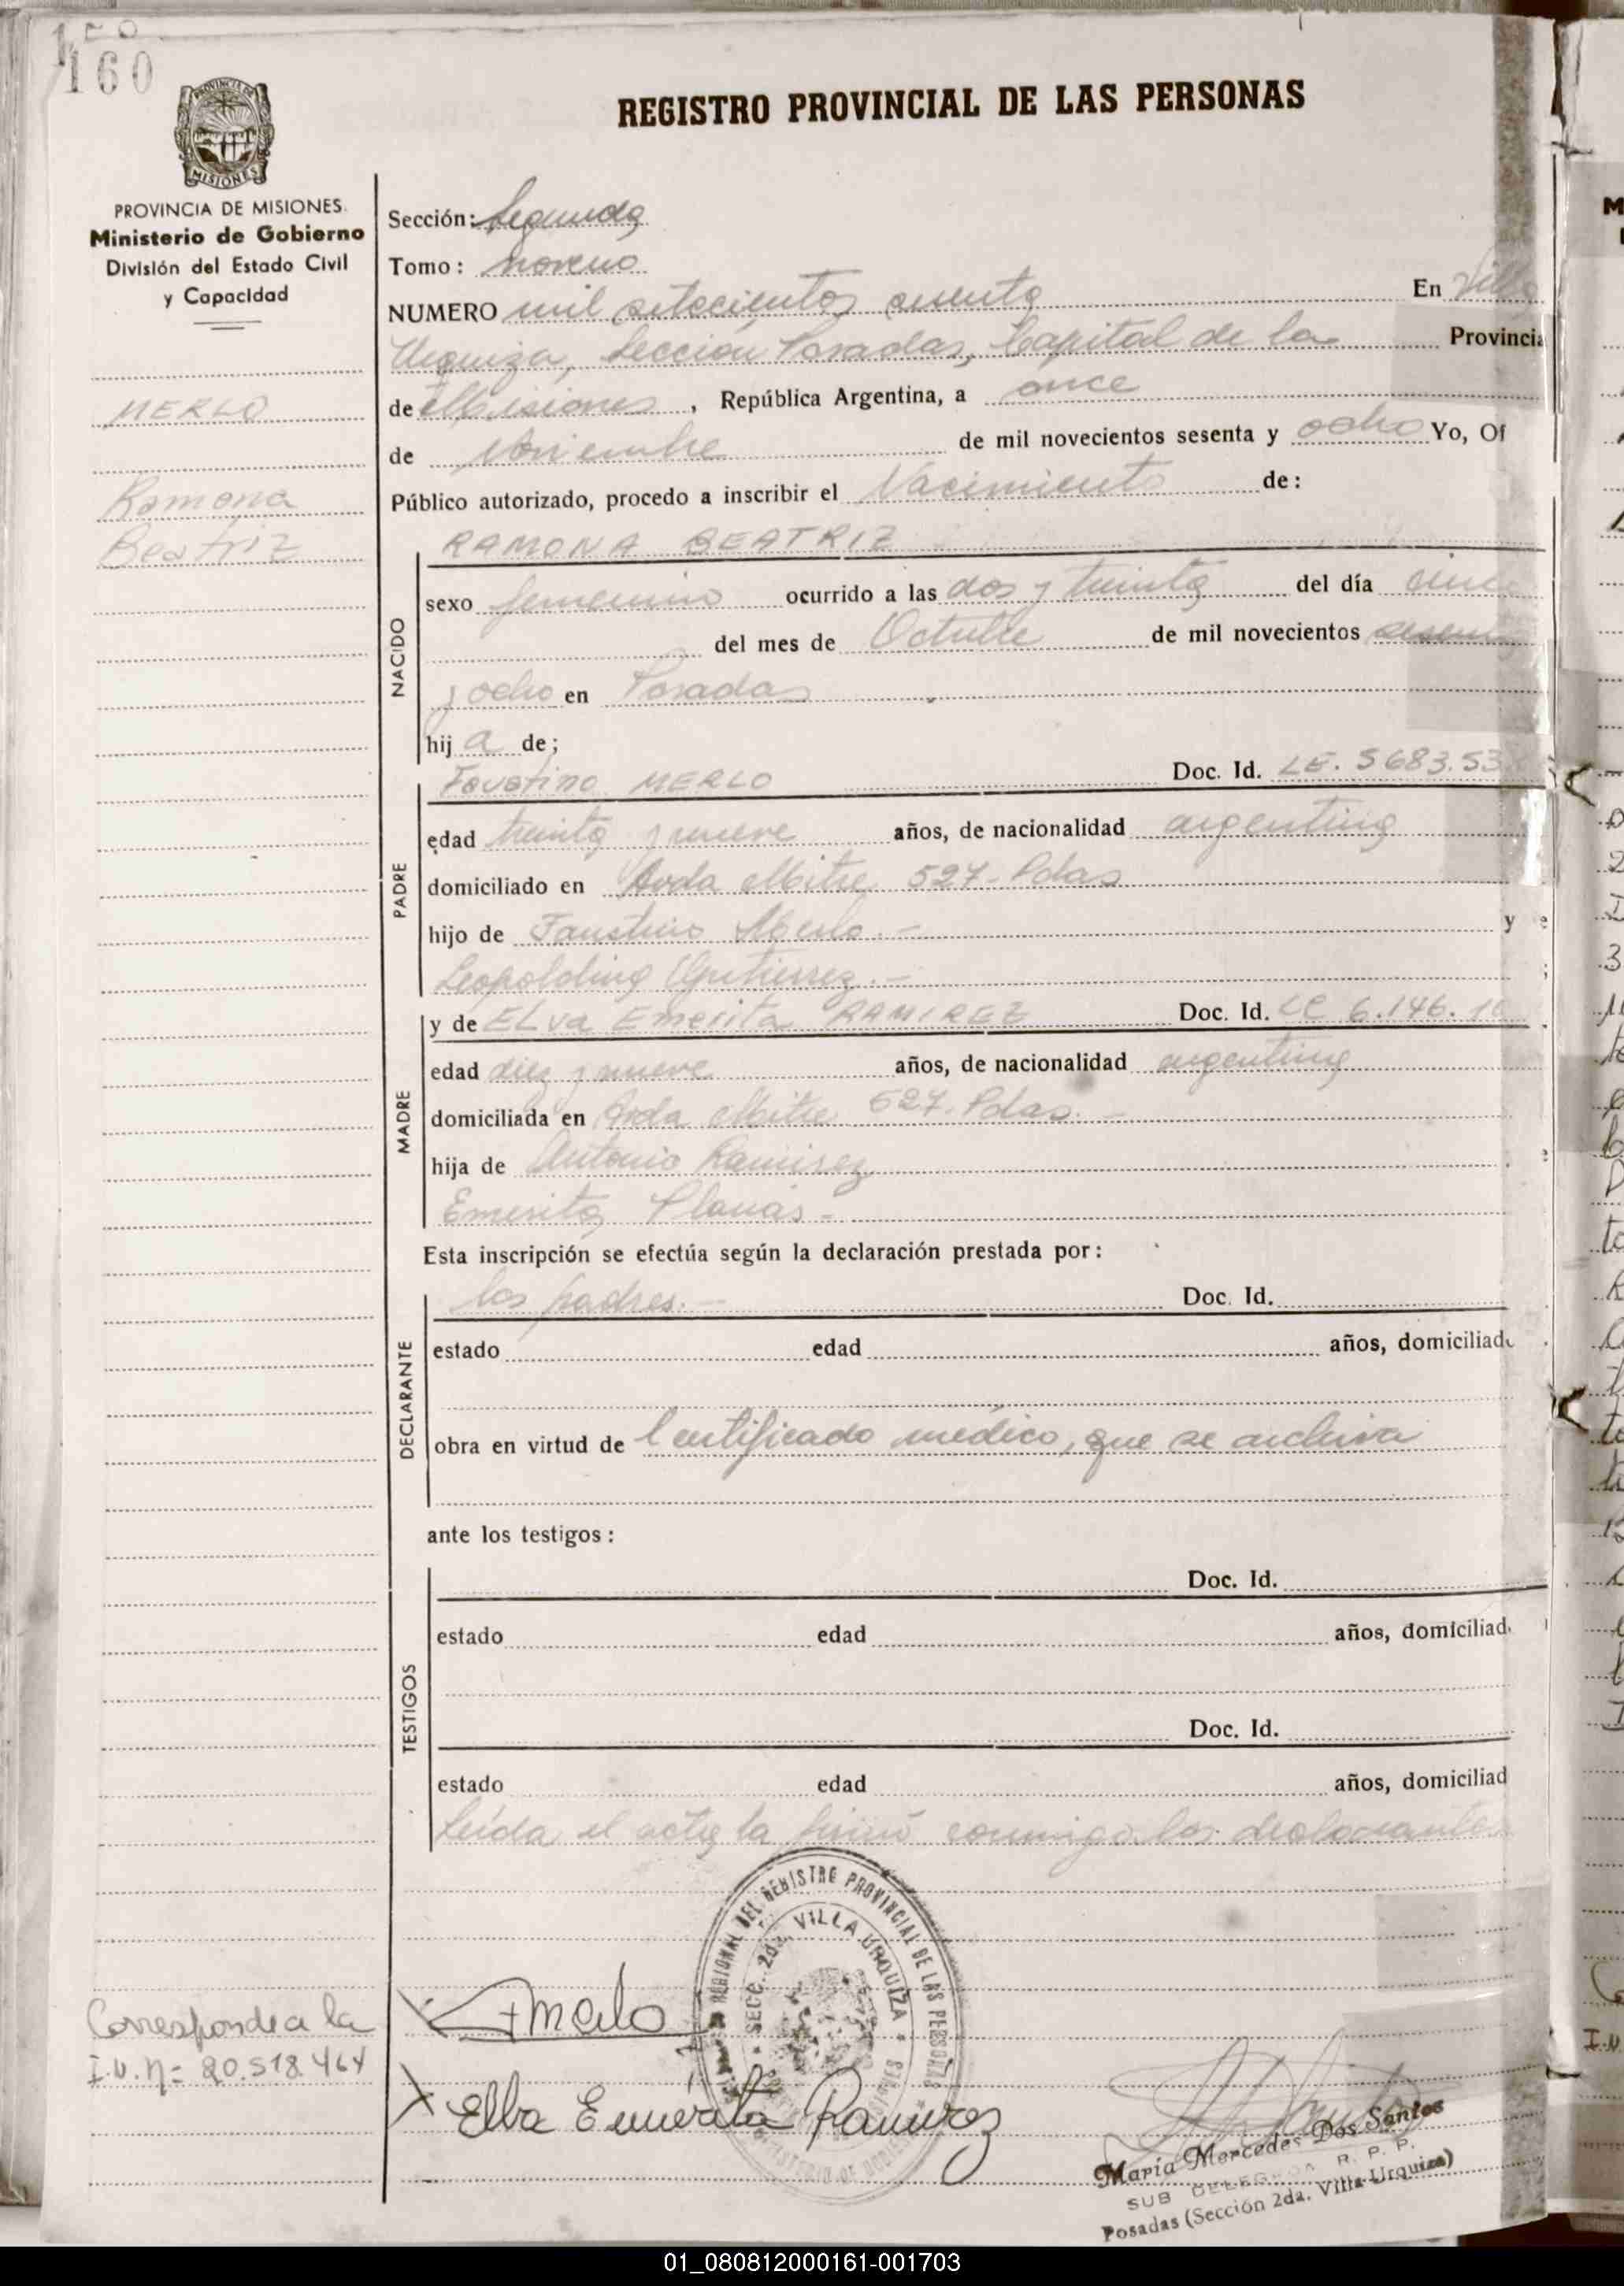 160
REGISTRO PROVINCIAL DE LAS PERSONAS
PROVINCIA DE MISIONES
MISIONES
PROVINCIA DE MISIONES.
Ministerio de Gobierno
División del Estado Civil
y Capacidad
MERLO
Ramona
Beatriz
Sección: Segunda
Tomo: noveno
NUMERO mil setecientos sesenta En Villa
Urquiza, Sección Posadas, Capital de la Provincia
de Misiones, República Argentina, a once
de Noviembre de mil novecientos sesenta y ocho Yo, Of
Público autorizado, procedo a inscribir el Nacimiento de:
RAMONA BEATRIZ
NACIDO
sexo femenino ocurrido a las dos y treinta del día
del mes de Octubre de mil novecientos sesenta
y ocho en Posadas
hij a de;
PADRE
Faustino MERLO Doc. Id. LE. 5683.53
edad treinta y nueve años, de nacionalidad argentina
domiciliado en Avda Mitre 527- Pdas
hijo de Faustino Merlo.- y
Leopoldina Gutierrez.-
MADRE
y de ELva Emerita RAMIREZ Doc. Id. LC 6.146.
edad diez y nueve años, de nacionalidad argentina
domiciliada en Avda Mitre 527. Pdas.-
hija de Antonio Ramirez
Emerita Planás-
Esta inscripción se efectúa según la declaración prestada por:
DECLARANTE
los padres.- Doc. Id.
estado edad años, domiciliad
obra en virtud de Certificado médico, que se archiva
ante los testigos:
TESTIGOS
Doc. Id.
estado edad años, domiciliad
Doc. Id.
estado edad años, domiciliad
Leída el acta la firmó conmigo los declarantes
REGIONAL DEL REGISTRO PROVINCIAL DE LAS PERSONAS
SECC. 2da. VILLA URQUIZA
Corresponde a la
I.N. Nº= 20.518.464
Merlo
Elba Emerita Ramirez
María Mercedes Dos Santos
SUB DELEGADA R. P. P.
Posadas (Sección 2da. Villa Urquiza)
01_080812000161-001703